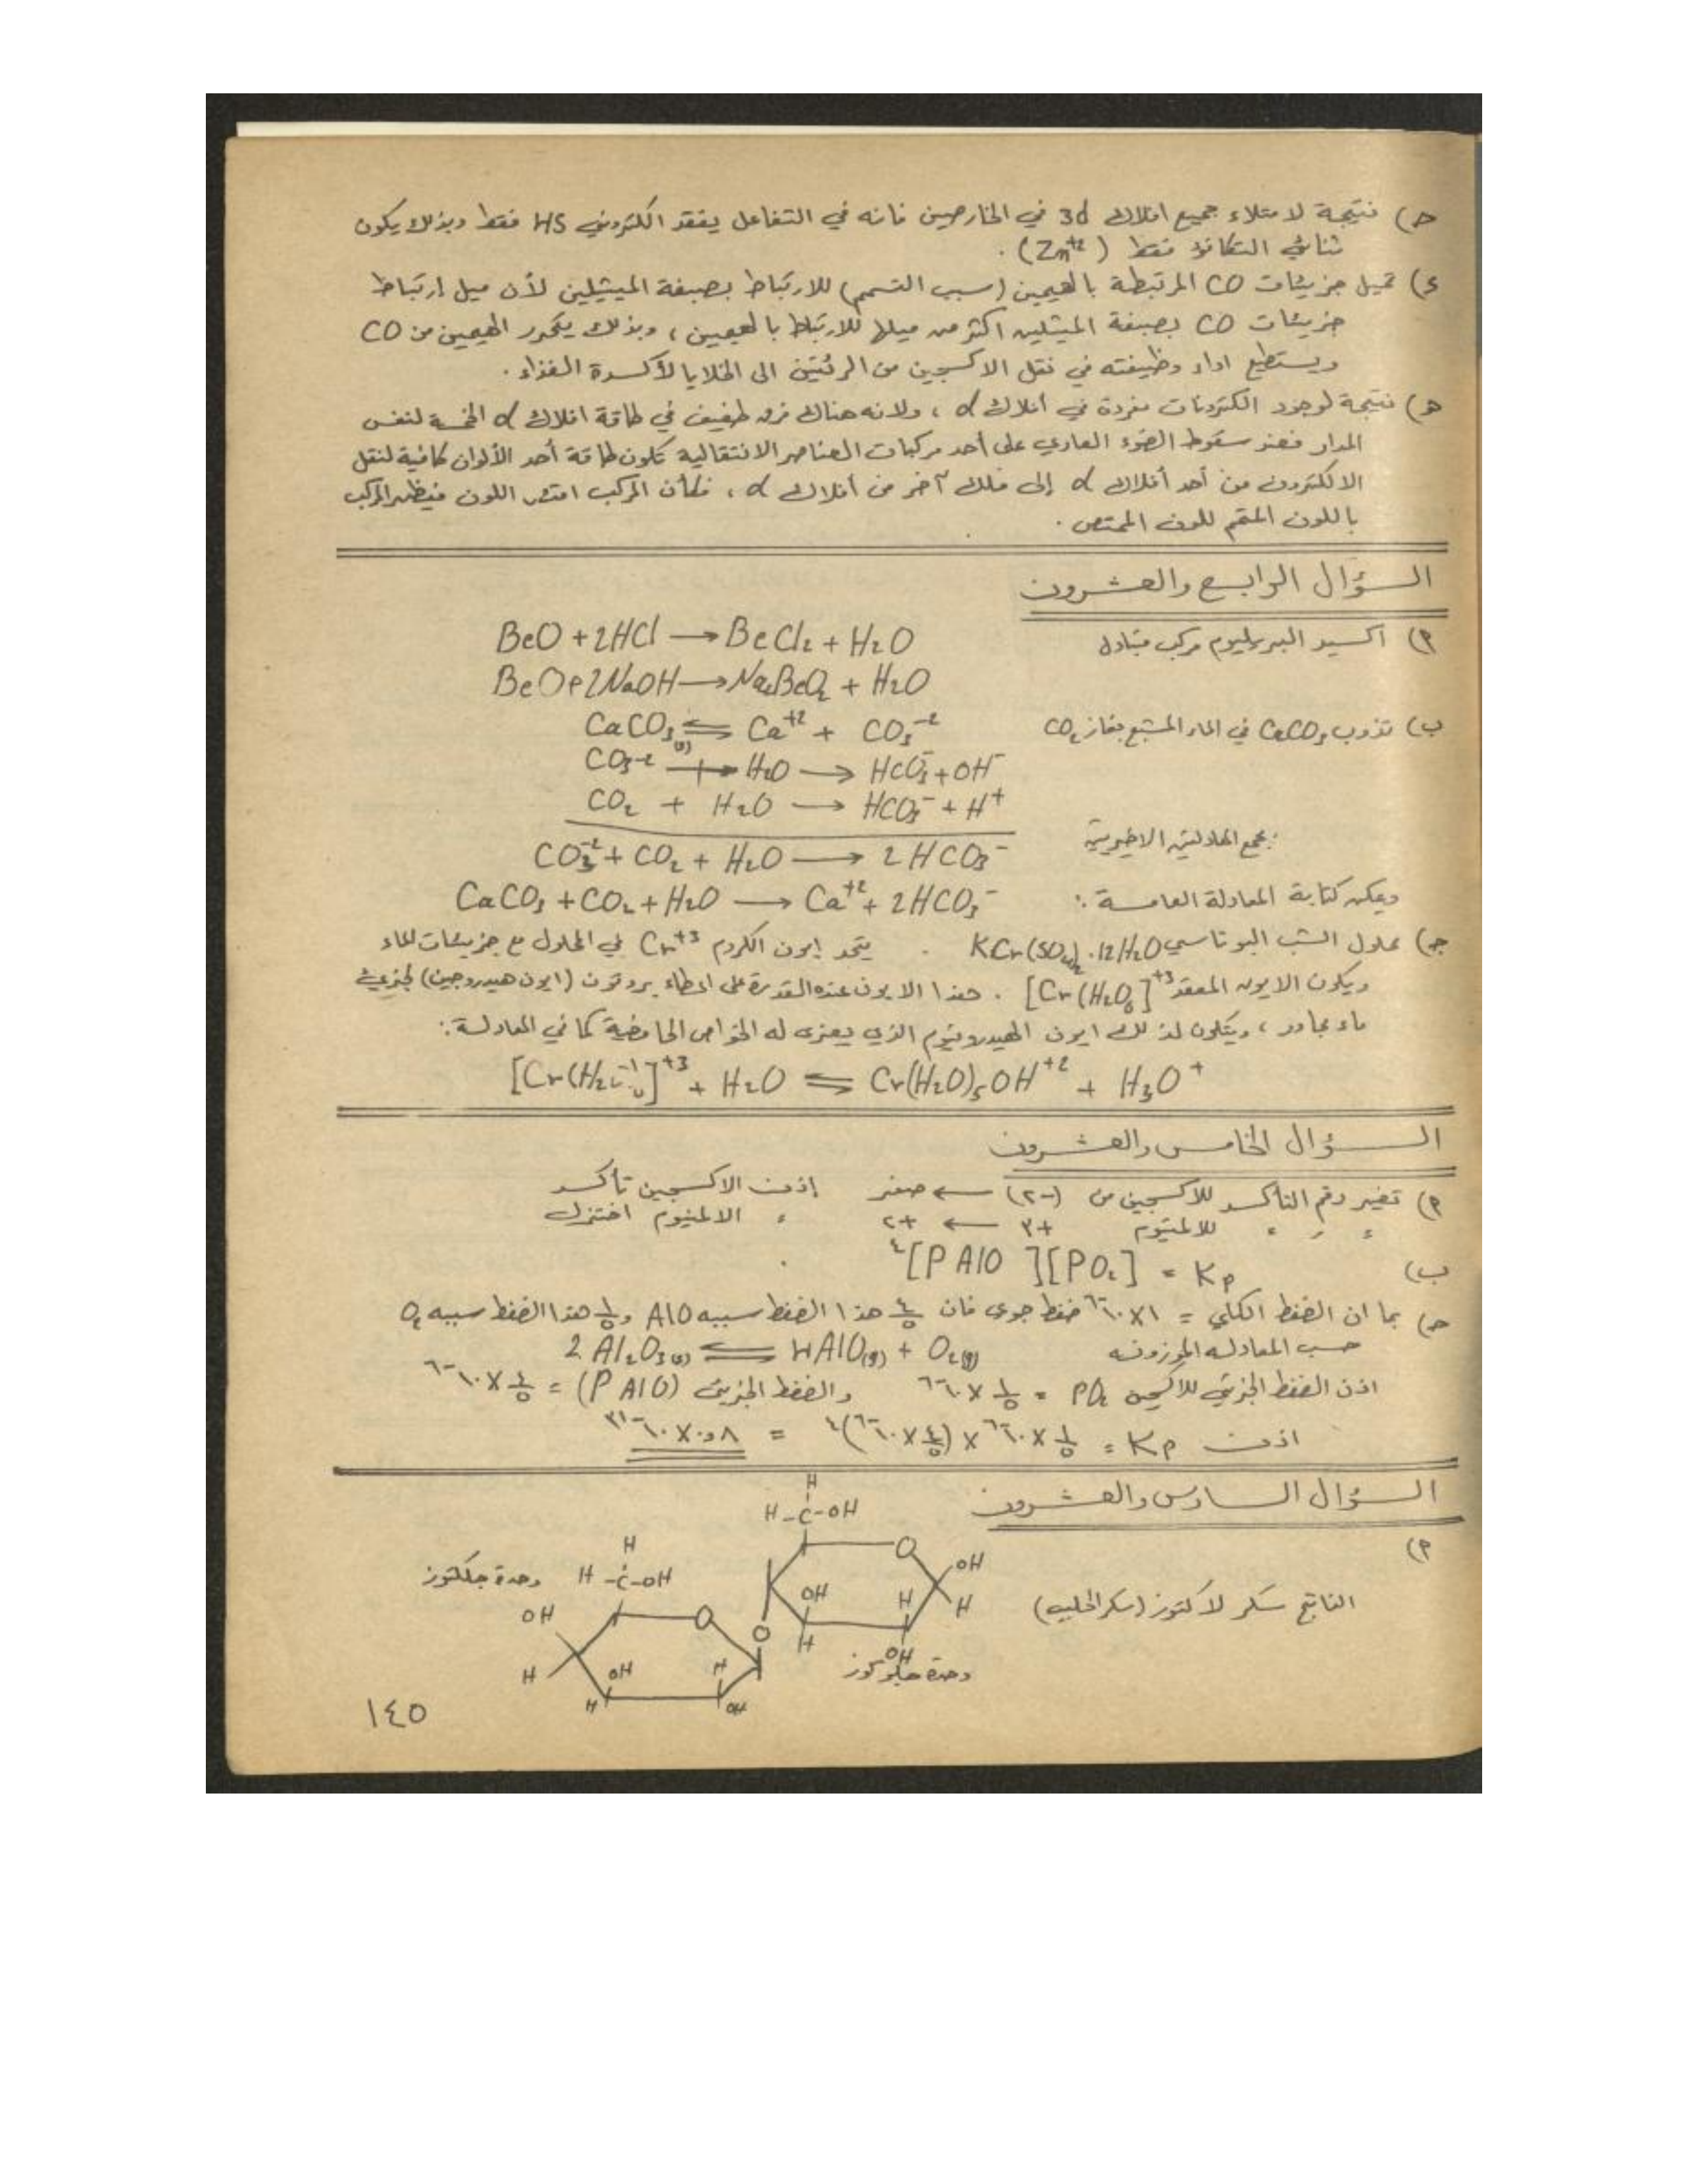 ج) نتيجة لامتلاء جميع افلاك 3d في الخارصين فانه في التفاعل يفقد الكتروني 4S فقط وبذلك يكون
ثنائي التكافؤ فقط (Zn⁺²) .
د) تميل جزيئات CO المرتبطة بالهيمين (سبب التسمم) للارتباط بصبغة الميثيلين لأن ميل ارتباط
جزيئات CO بصبغة الميثيلين اكثر من ميلها للارتباط بالهيمين ، وبذلك يتحرر الهيمين من CO
ويستطيع اداء وظيفته في نقل الاكسجين من الرئتين الى الخلايا لأكسدة الغذاء .
هـ) نتيجة لوجود الكترونات مفردة في أفلاك d ، ولانه هناك فرق طفيف في طاقة افلاك d الخمسة لنفس
المدار فعند سقوط الضوء العادي على أحد مركبات العناصر الانتقالية تكون طاقة أحد الألوان كافية لنقل
الالكترون من أحد أفلاك d إلى فلك آخر من أفلاك d ، فكأن المركب امتص اللون فيظهر المركب
باللون المتمم للون الممتص .
الســؤال الرابــع والعــشرون
أ) اكسيد البريليوم مركب متبادل BeO + 2HCl → BeCl₂ + H₂O
BeO + 2NaOH → Na₂BeO₂ + H₂O
ب) تذوب CaCO₃ في الماء المشبع بغاز CO₂ CaCO₃(s) ⇌ Ca⁺² + CO₃⁻²
CO₃⁻² + H₂O → HCO₃⁻ + OH⁻
CO₂ + H₂O → HCO₃⁻ + H⁺
بجمع المعادلتين الاخيرتين CO₃⁻² + CO₂ + H₂O → 2HCO₃⁻
ويمكن كتابة المعادلة العامــة : CaCO₃ + CO₂ + H₂O → Ca⁺² + 2HCO₃⁻
جـ) محلول الشب البوتاسي KCr(SO₄)₂ . 12H₂O . يتحد ايون الكروم Cr⁺³ في المحلول مع جزيئات الماء
ويكون الايون المعقد [Cr(H₂O)₆]⁺³ . هذا الايون عنده القدرة على اعطاء بروتون (ايون هيدروجين) لجزيئي
ماء مجاور ، ويتكون لذلك ايون الهيدرونيوم الذي يعزى له الخواص الحامضية كما في المعادلــة :
+ H₂O ⇌ Cr(H₂O)₅OH⁺² + H₃O⁺
الســؤال الخامــس والعــشرون
أ) تغير رقم التأكسد للاكسجين من (-٢) ← صفر إذن الاكسجين تأكسد
״ ״ ״ للالمنيوم +٣ ← +٢ ، الالمنيوم اختزل
ب) Kp = [PO₂][P AlO]⁴
جـ) بما ان الضغط الكلي = ١×١٠⁻⁶ ضغط جوي فان ٤/٥ هذا الضغط سببه AlO و ١/٥ هذا الضغط سببه O₂
حسب المعادله الموزونه 2 Al₂O₃(s) ⇌ 4AlO(g) + O₂(g)
اذن الضغط الجزيئي للاكسجين PO₂ = ١/٥ × ١٠⁻⁶ والضغط الجزيئي (P AlO) = ٤/٥ × ١٠⁻⁶
اذن Kp = ١/٥ × ١٠⁻⁶ × (٤/٥ × ١٠⁻⁶)⁴ = ٠٫٨ × ١٠⁻³¹
الســؤال الســادس والعــشرون
أ)
H
H-C-OH
O
OH
OH
H
H
H
OH
الناتج سكر لاكتوز (سكر الحليب)
وحدة جلوكوز
وحدة جلكتوز
H
H-C-OH
OH
O
O
H
OH
H
H
OH
١٤٥